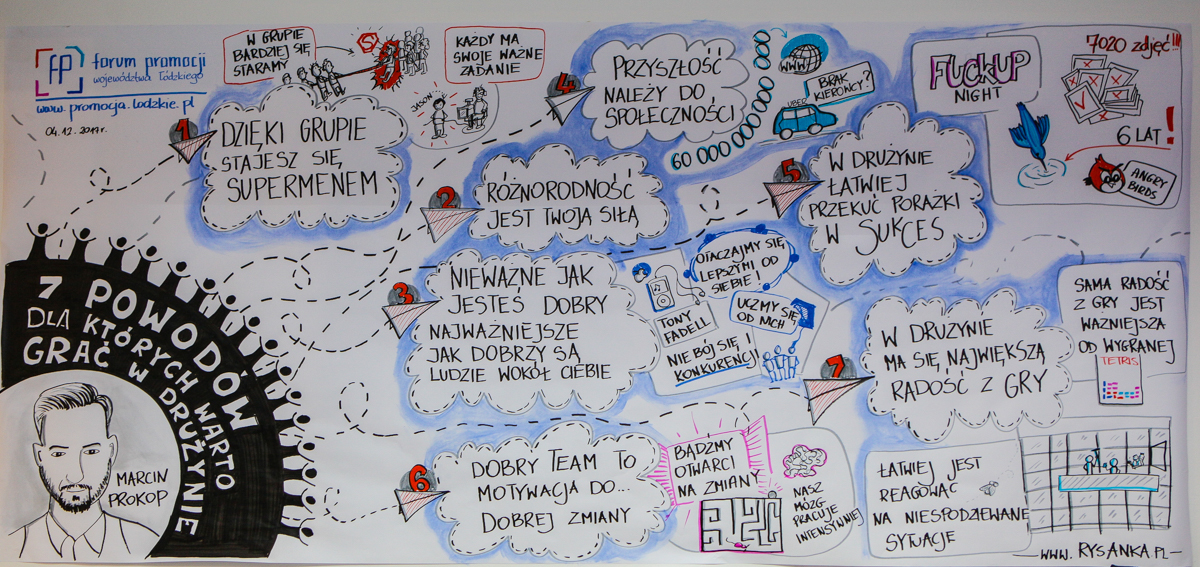 fp forum promocji
województwa Łódzkiego
www.promocja.lodzkie.pl
04.12.2019r.
W GRUPIE
BARDZIEJ SIĘ
STARAMY
S
KAŻDY MA
SWOJE WAŻNE
ZADANIE
JASON
1
DZIĘKI GRUPIE
STAJESZ SIĘ
SUPERMENEM
2
RÓŻNORODNOŚĆ
JEST TWOJĄ SIŁĄ
3
NIEWAŻNE JAK
JESTEŚ DOBRY
NAJWAŻNIEJSZE
JAK DOBRZY SĄ
LUDZIE WOKÓŁ CIEBIE
TONY
FADELL
OTACZAJMY SIĘ
LEPSZYMI OD
SIEBIE!
UCZMY SIĘ
OD NICH
NIE BÓJ SIĘ
KONKURENCJI!
4
PRZYSZŁOŚĆ
NALEŻY DO
SPOŁECZNOŚCI
60 000 000 000 000 000 000
WWW
BRAK
KIEROWCY?
UBER
5
W DRUŻYNIE
ŁATWIEJ
PRZEKUĆ PORAŻKI
W SUKCES
FUCKUP
NIGHT
7020 zdjęć!!!
6 LAT!
ANGRY
BIRDS
6
DOBRY TEAM TO
MOTYWACJA DO...
DOBREJ ZMIANY
BĄDŹMY
OTWARCI
NA ZMIANY
NASZ
MÓZG
PRACUJE
INTENSYWNIEJ
7
W DRUŻYNIE
MA SIĘ NAJWIĘKSZĄ
RADOŚĆ Z GRY
SAMA RADOŚĆ
Z GRY JEST
WAŻNIEJSZA
OD WYGRANEJ
TETRIS
ŁATWIEJ JEST
REAGOWAĆ
NA NIESPODZIEWANE
SYTUACJE
7 POWODÓW
DLA KTÓRYCH WARTO
GRAĆ W DRUŻYNIE
MARCIN
PROKOP
WWW.RYSANKA.PL